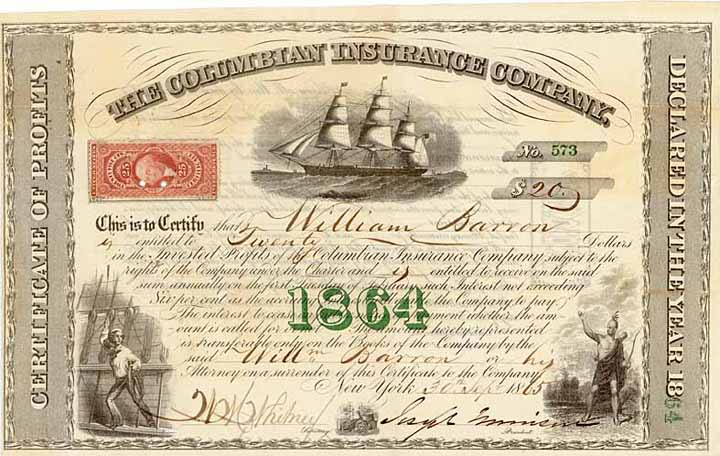 THE COLUMBIAN INSURANCE COMPANY,
CERTIFICATE OF PROFITS
DECLARED IN THE YEAR 1864
25 25
No. 573
$ 20.
This is to Certify that William Barron
is entitled to Twenty Dollars
in the Invested Profits of the Columbian Insurance Company subject to the
rights of the Company under the Charter and is entitled to receive on the said
sum annually on the first
such Interest not exceeding
Six per cent as the
the Company to pay.
The interest to cease
whether the am-
ount is called for
hereby represented
is transferable only on the Books of the Company by the
said Willm Barron or his
Attorney on a surrender of this Certificate to the Company.
New York 30th Sept 1865
1864
Secretary
President